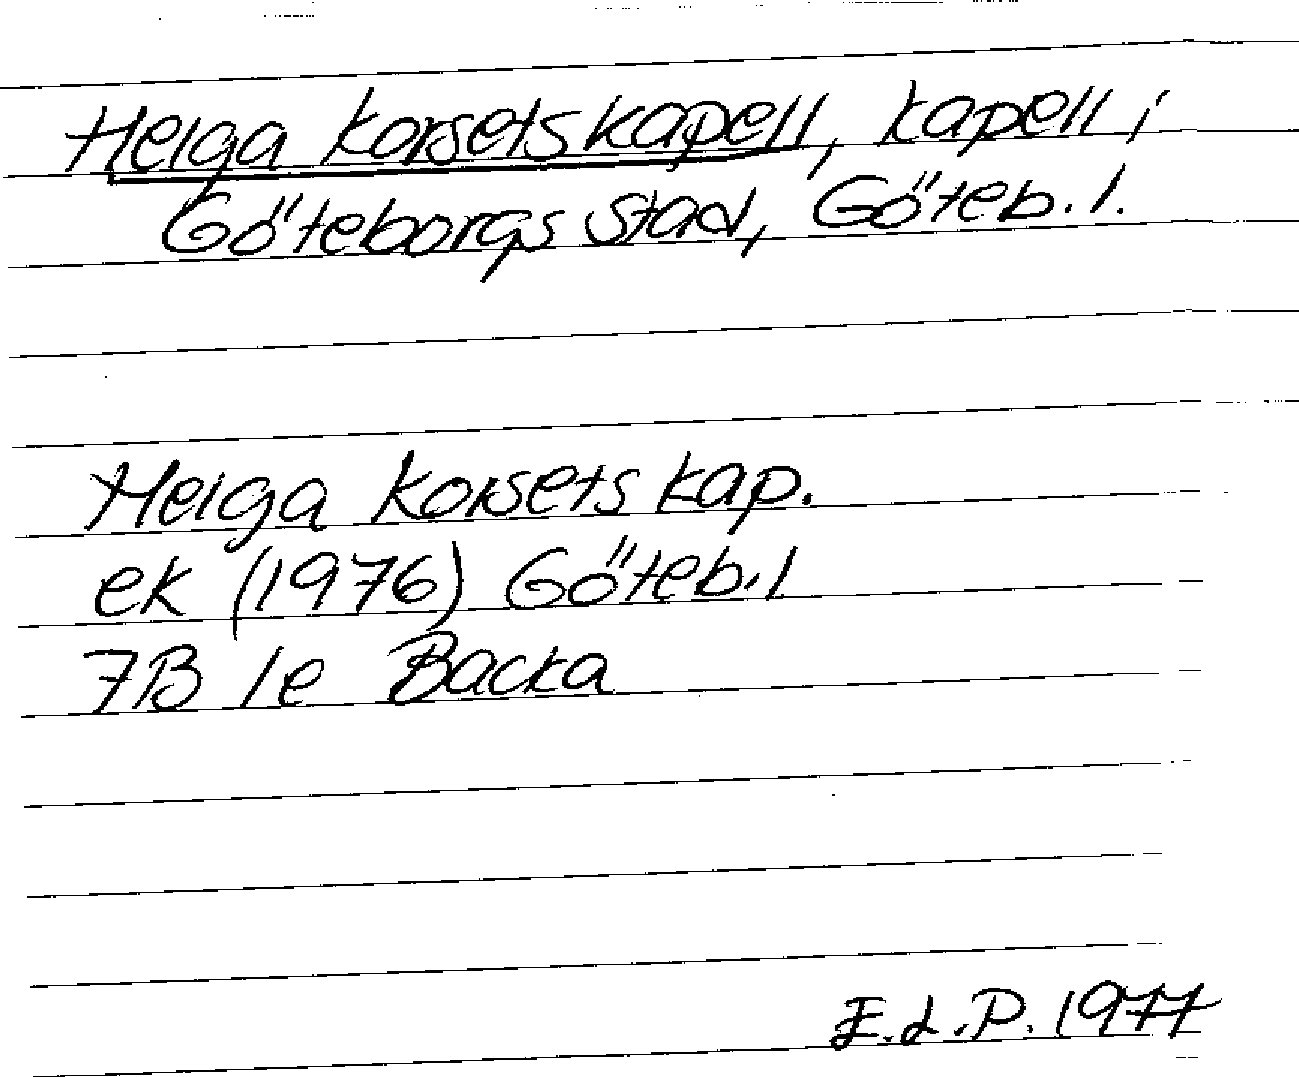 Helga korsets kapell, kapell i
Göteborgs stad, Göteb. l.
Helga korsets kap.
ek (1976) Göteb. l
7B 1e Backa
E.L.P. 1977